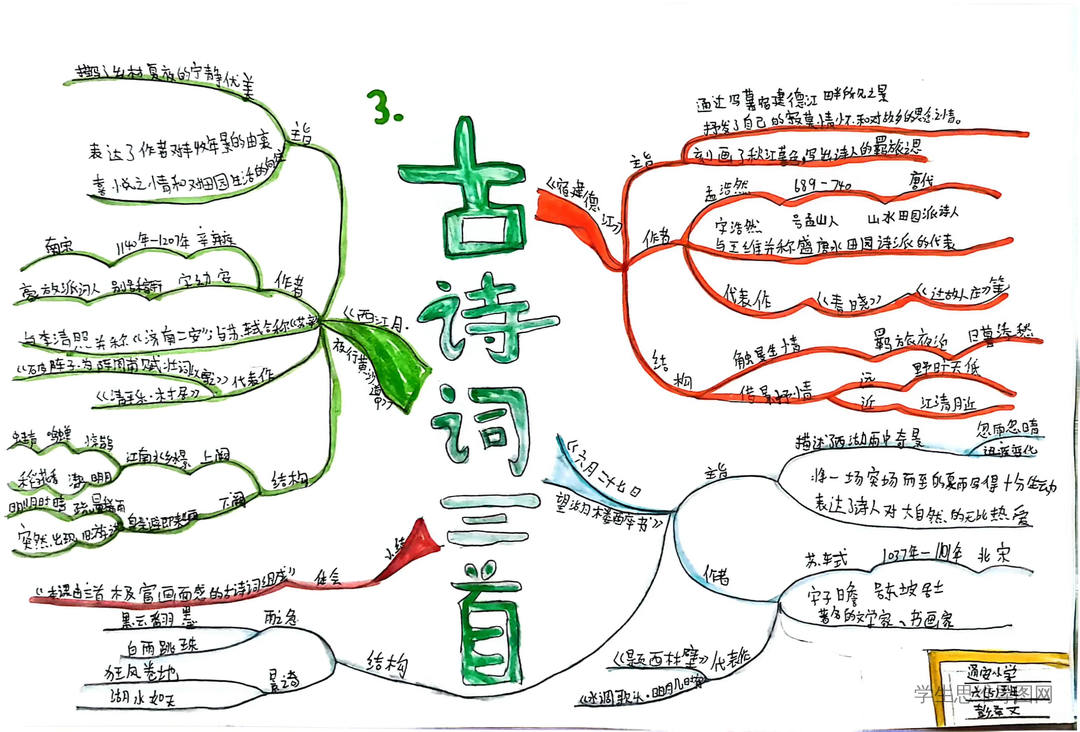 3.
古诗词三首
《宿建德江》
主旨
通过写暮宿建德江畔所见之景
抒发了自己的寂寞情怀和对故乡的思念之情。
刻画了秋江暮色,写出诗人的羁旅之思
作者
孟浩然 689-740 唐代
字浩然 号孟山人 山水田园派诗人
与王维并称盛唐水田园诗派的代表
代表作 《春晓》 《过故人庄》等
结构
触景生情 羁旅夜泊 日暮添愁
借景抒情
远 野旷天低
近 江清月近
《六月二十七日
望湖楼醉书》
主旨
描述了西湖雨中奇景 忽雨忽晴
迅速变化
将一场突场而至的夏雨写得十分生动
表达了诗人对大自然的无比热爱
作者
苏轼 1037年-1101年 北宋
字子瞻 号东坡居士
著名的文学家、书画家
代表作
《题西林壁》
《水调歌头·明月几时有》
结构
雨之急
黑云翻墨
白雨跳珠
狂风卷地
湖水如天
小结
体会
《本课由三首极富画面感的古诗词组成》
《西江月·
夜行黄沙道中》
主旨
描写了乡村夏夜的宁静优美
表达了作者对丰收年景的由衷
喜悦之情和对田园生活的向往
作者
南宋 1140年-1207年 辛弃疾
豪放派词人 别号稼轩 字幼安
与李清照并称《济南二安》与苏轼合称《苏辛》
代表作
《破阵子·为陈同甫赋壮词以寄》
《清平乐·村居》
结构
上阕 江南水乡
惊鹊
下阕
突然出现
通安小学